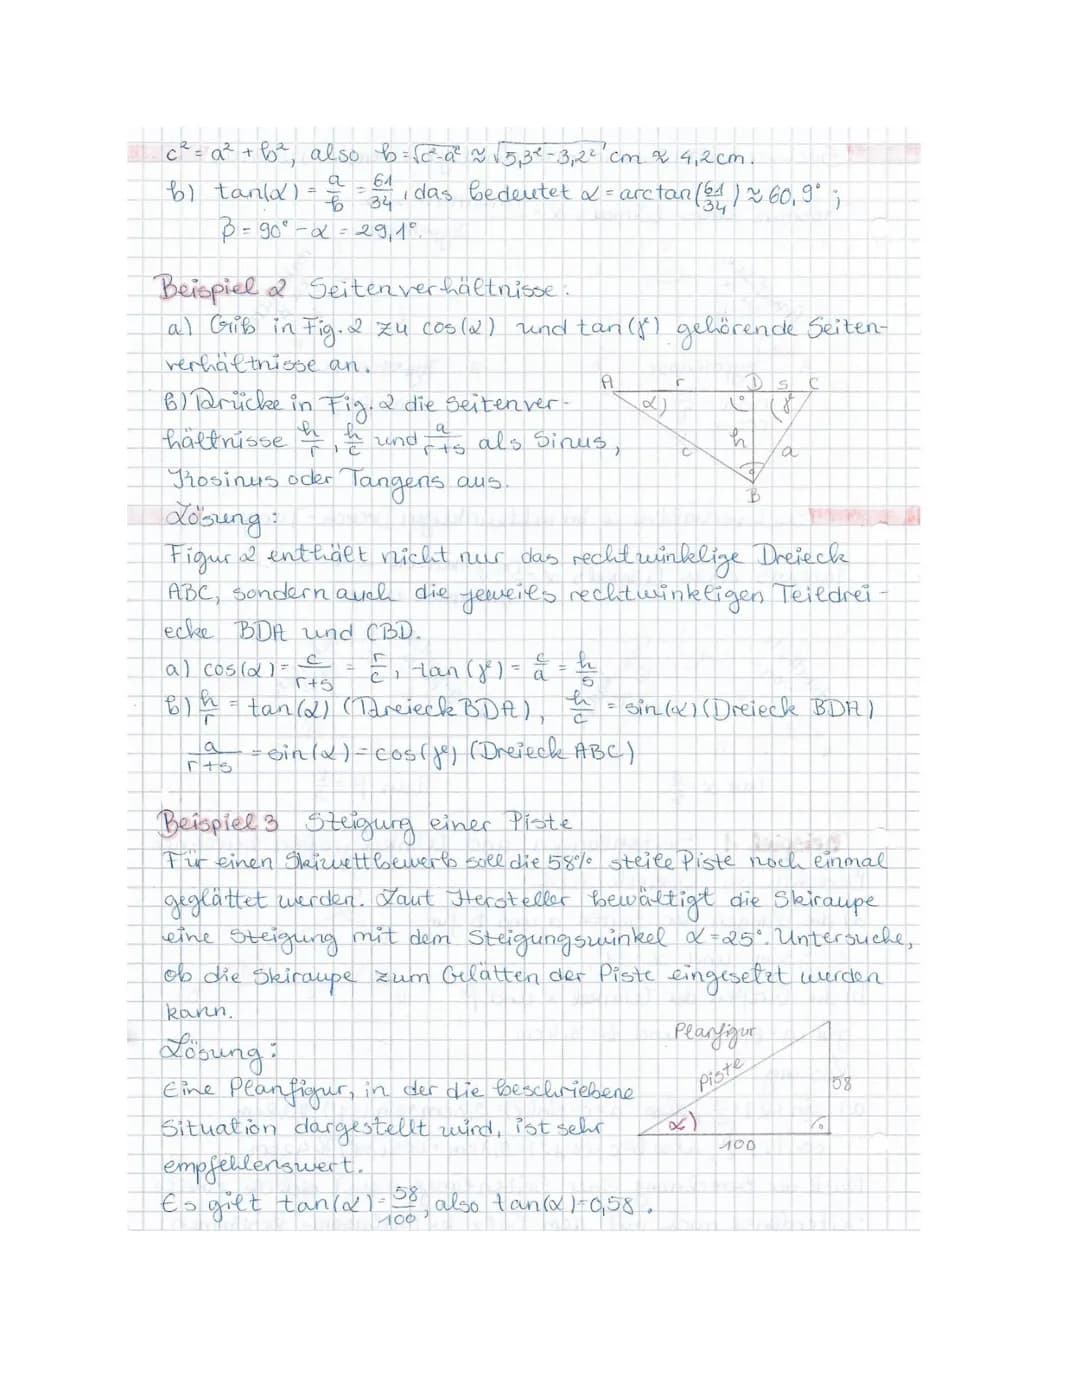 c² = a² + b², also b = √c²-a² ≈ √5,3²-3,2² cm ≈ 4,2cm.
b) tan(α) = a/b = 61/34, das bedeutet α = arctan(61/34) ≈ 60,9°;
β = 90° - α = 29,1°.
Beispiel 2 Seitenverhältnisse.
a) Gib in Fig. 2 zu cos(α) und tan(γ) gehörende Seiten-
verhältnisse an.
b) Drücke in Fig. 2 die Seitenver-
hältnisse h/r, h/c und a/r+s als Sinus,
Kosinus oder Tangens aus.
A r D s C
α γ
h
c a
B
Lösung:
Figur 2 enthält nicht nur das rechtwinkelige Dreieck
ABC, sondern auch die jeweils rechtwinkeligen Teildrei-
ecke BDA und CBD.
a) cos(α) = c/r+s = r/c, tan(γ) = c/a = h/s
b) h/r = tan(α) (Dreieck BDA), h/c = sin(α) (Dreieck BDA)
a/r+s = sin(α) = cos(γ) (Dreieck ABC)
Beispiel 3 Steigung einer Piste
Für einen Skiwettbewerb soll die 58% steile Piste noch einmal
geglättet werden. Laut Hersteller bewältigt die Skiraupe
eine Steigung mit dem Steigungswinkel α = 25°. Untersuche,
ob die Skiraupe zum Gelätten der Piste eingesetzt werden
kann.
Lösung:
Planfigur
Piste
58
α
100
Eine Planfigur, in der die beschriebene
Situation dargestellt wird, ist sehr
empfehlenswert.
Es gilt tan(α) = 58/100, also tan(α) = 0,58.